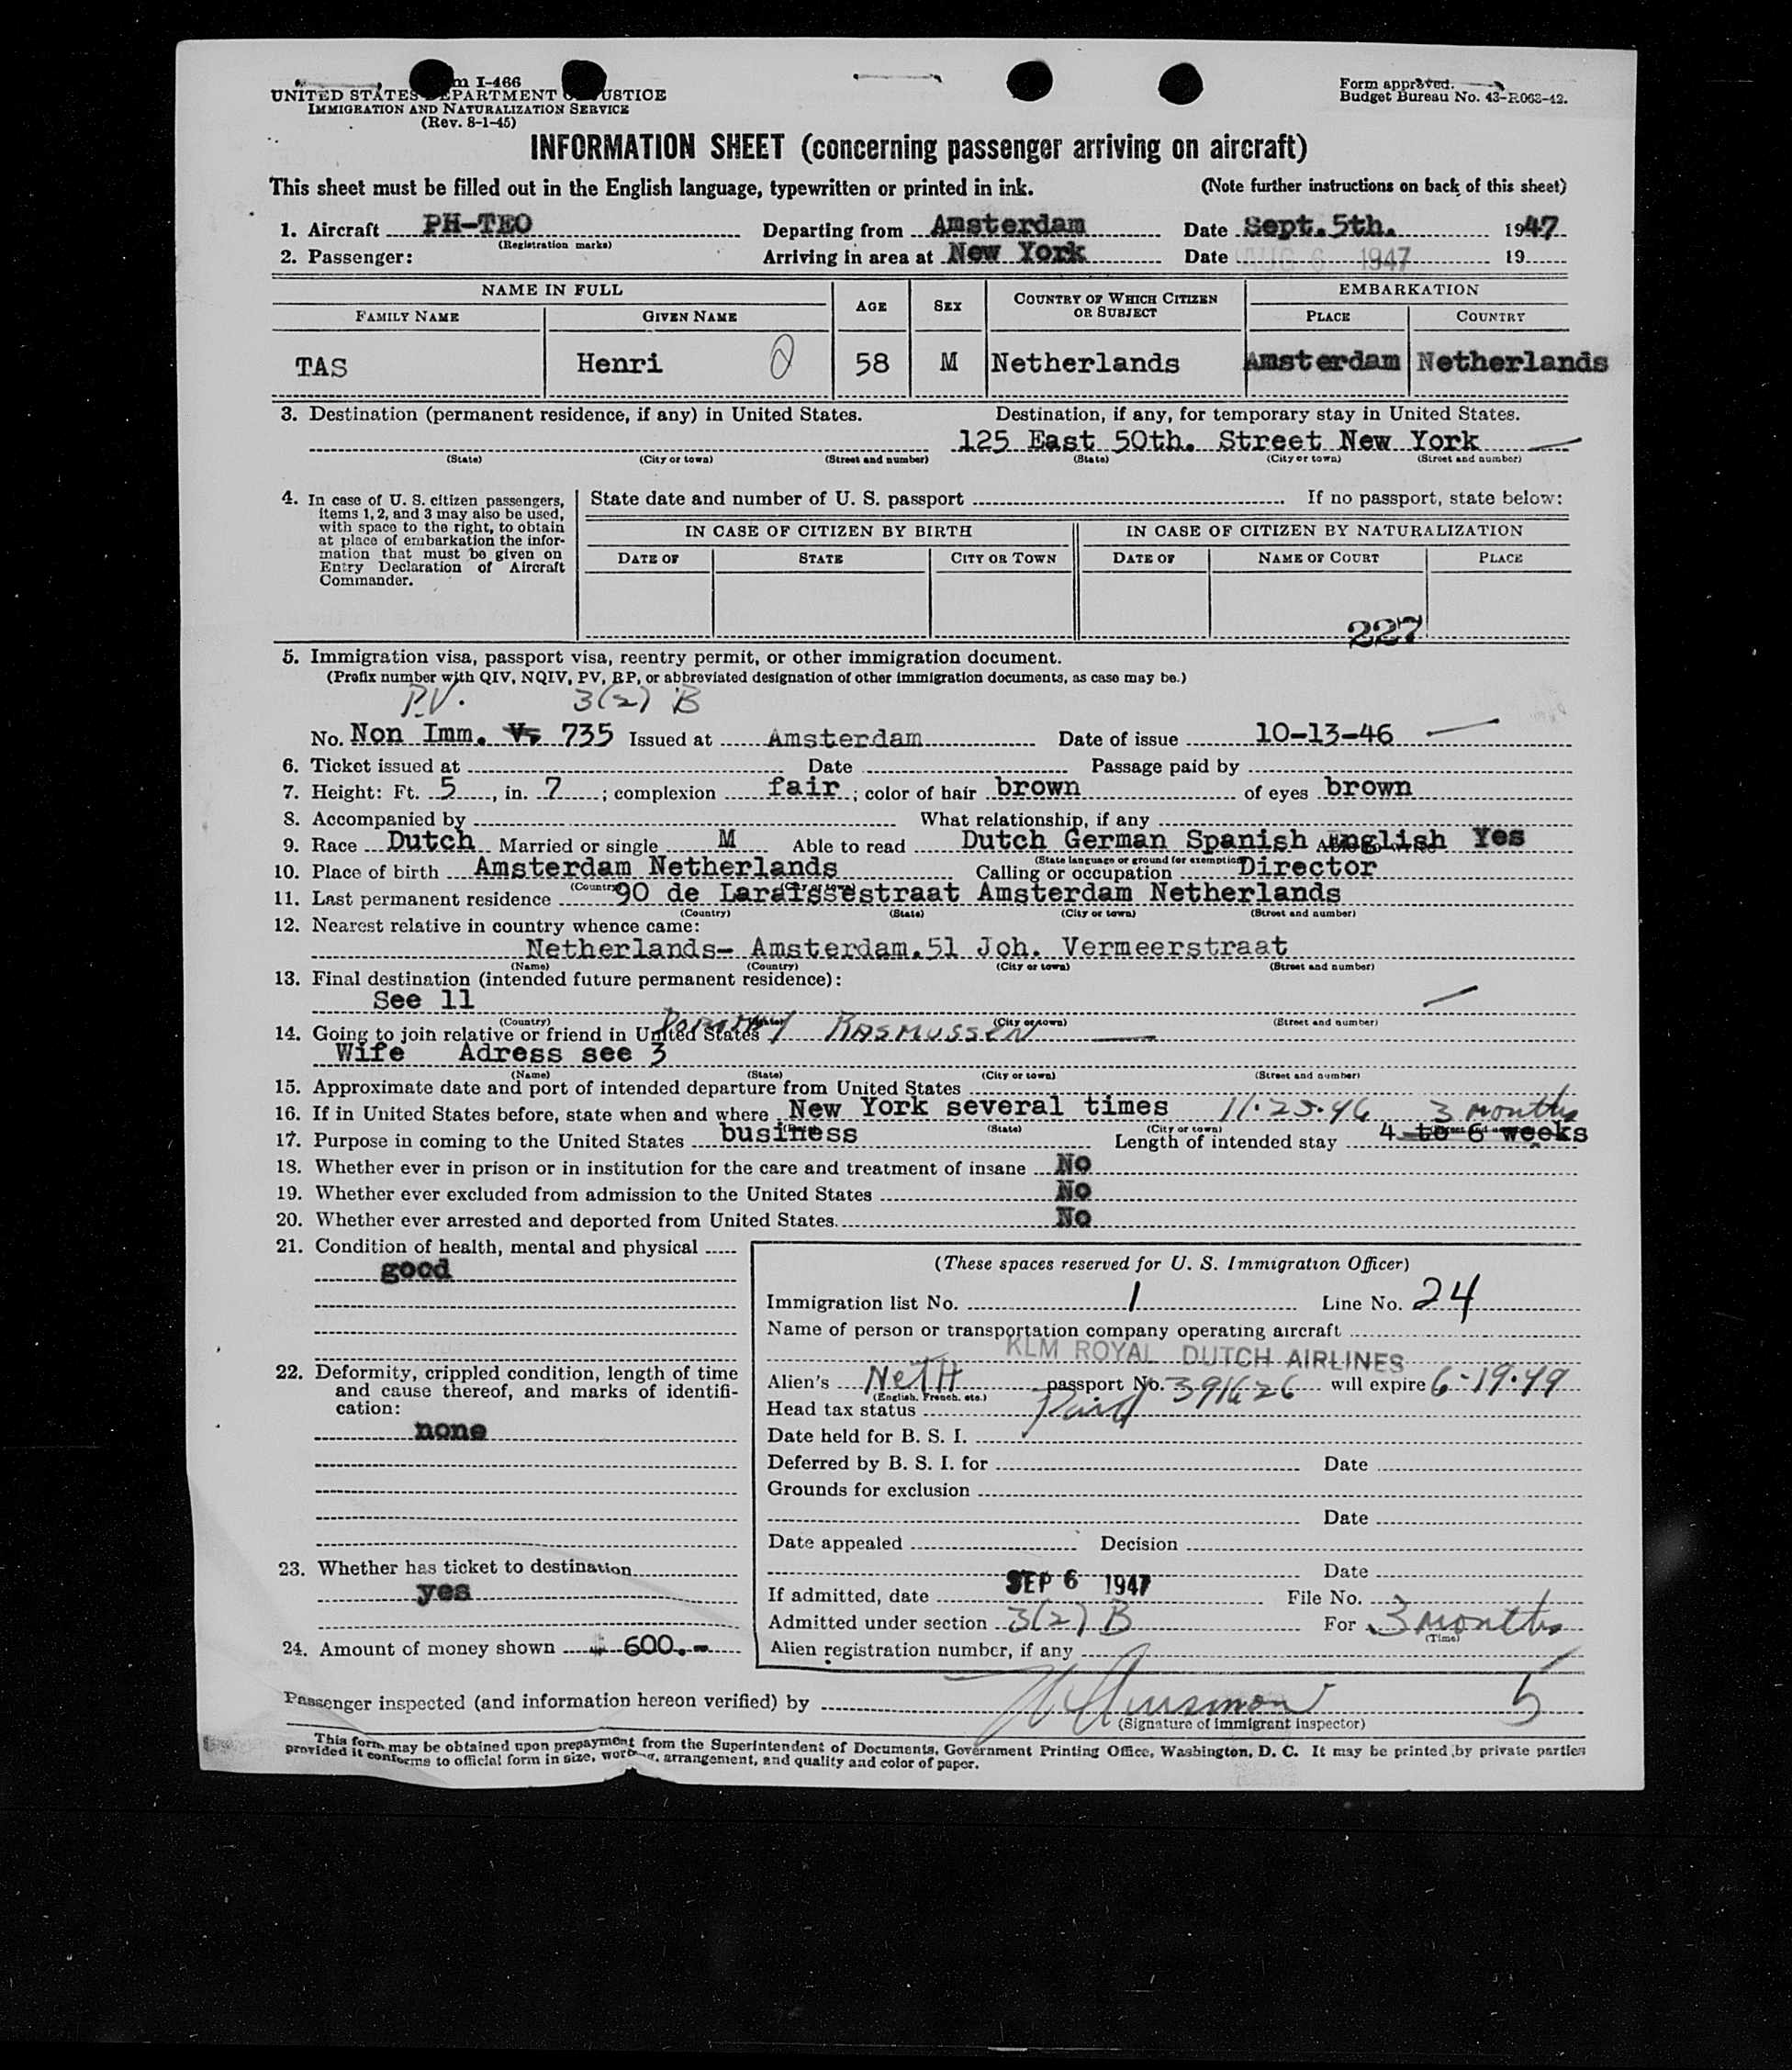 m I-466
UNITED STATES DEPARTMENT OF JUSTICE
IMMIGRATION AND NATURALIZATION SERVICE
(Rev. 8-1-45)
Form approved.
Budget Bureau No. 43-R063-42.
INFORMATION SHEET (concerning passenger arriving on aircraft)
This sheet must be filled out in the English language, typewritten or printed in ink. (Note further instructions on back of this sheet)
1. Aircraft PH-TEO Departing from Amsterdam Date Sept.5th. 1947
(Registration marks)
2. Passenger: Arriving in area at New York Date AUG 6 1947 19
NAME IN FULL AGE SEX COUNTRY OF WHICH CITIZEN OR SUBJECT EMBARKATION
FAMILY NAME GIVEN NAME PLACE COUNTRY
TAS Henri 58 M Netherlands Amsterdam Netherlands
3. Destination (permanent residence, if any) in United States. Destination, if any, for temporary stay in United States.
125 East 50th. Street New York
(State) (City or town) (Street and number) (State) (City or town) (Street and number)
4. In case of U. S. citizen passengers,
items 1, 2, and 3 may also be used,
with space to the right, to obtain
at place of embarkation the infor-
mation that must be given on
Entry Declaration of Aircraft
Commander.
State date and number of U. S. passport If no passport, state below:
IN CASE OF CITIZEN BY BIRTH IN CASE OF CITIZEN BY NATURALIZATION
DATE OF STATE CITY OR TOWN DATE OF NAME OF COURT PLACE
227
5. Immigration visa, passport visa, reentry permit, or other immigration document.
(Prefix number with QIV, NQIV, PV, RP, or abbreviated designation of other immigration documents, as case may be.)
P.V. 3(2) B
No. Non Imm. V. 735 Issued at Amsterdam Date of issue 10-13-46
6. Ticket issued at Date Passage paid by
7. Height: Ft. 5, in. 7; complexion fair; color of hair brown of eyes brown
8. Accompanied by What relationship, if any
9. Race Dutch Married or single M Able to read Dutch German Spanish English Able to write Yes
(State language or ground for exemption)
10. Place of birth Amsterdam Netherlands Calling or occupation Director
(Country) (City or town)
11. Last permanent residence 90 de Laraissestraat Amsterdam Netherlands
(Country) (State) (City or town) (Street and number)
12. Nearest relative in country whence came:
Netherlands- Amsterdam.51 Joh. Vermeerstraat
(Name) (Country) (City or town) (Street and number)
13. Final destination (intended future permanent residence):
See 11
(Country) (State) (City or town) (Street and number)
14. Going to join relative or friend in United States DOROTHY RASMUSSEN
Wife Adress see 3
(Name) (State) (City or town) (Street and number)
15. Approximate date and port of intended departure from United States
16. If in United States before, state when and where New York several times 11.23.46 3 months
(State) (City or town)
17. Purpose in coming to the United States business Length of intended stay 4 to 6 weeks
18. Whether ever in prison or in institution for the care and treatment of insane No
19. Whether ever excluded from admission to the United States No
20. Whether ever arrested and deported from United States. No
21. Condition of health, mental and physical
good
22. Deformity, crippled condition, length of time
and cause thereof, and marks of identifi-
cation:
none
23. Whether has ticket to destination
yes
24. Amount of money shown $ 600.-
(These spaces reserved for U. S. Immigration Officer)
Immigration list No. 1 Line No. 24
Name of person or transportation company operating aircraft
KLM ROYAL DUTCH AIRLINES
Alien's NETH passport No. 391626 will expire 6-19-49
(English, French, etc.)
Head tax status Paid
Date held for B. S. I.
Deferred by B. S. I. for Date
Grounds for exclusion
Date
Date appealed Decision
Date
If admitted, date SEP 6 1947 File No.
Admitted under section 3(2) B For 3 months
(Time)
Alien registration number, if any
Passenger inspected (and information hereon verified) by 5
(Signature of immigrant inspector)
This form may be obtained upon prepayment from the Superintendent of Documents, Government Printing Office, Washington, D. C. It may be printed by private parties
provided it conforms to official form in size, wording, arrangement, and quality and color of paper.